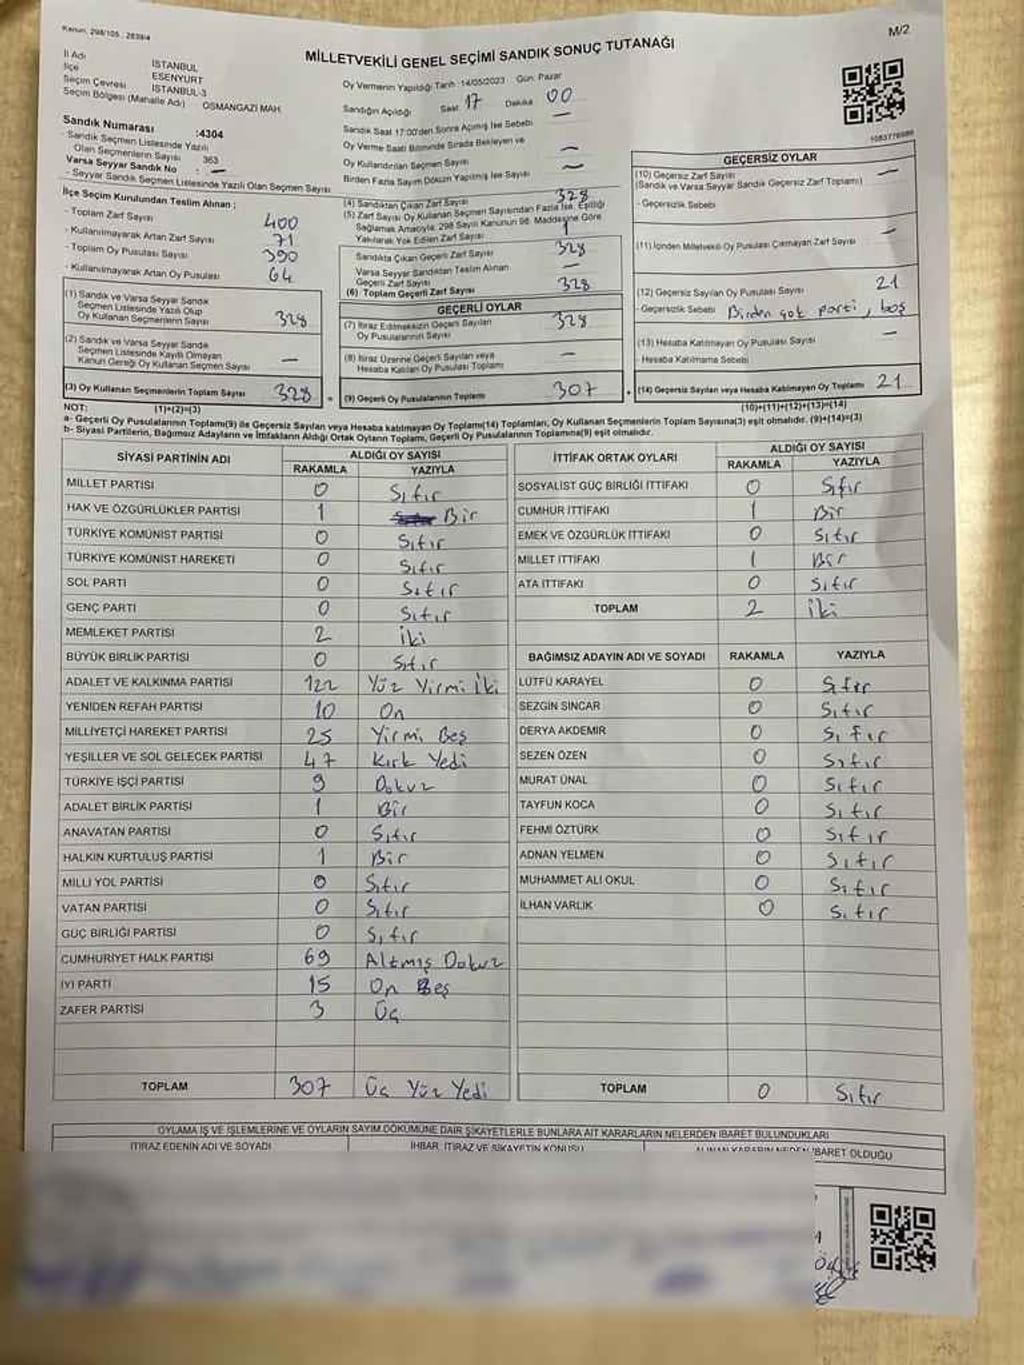 Kanun, 298/105 , 2839/4
M/2
MİLLETVEKİLİ GENEL SEÇİMİ SANDIK SONUÇ TUTANAĞI
İl Adı İSTANBUL
İlçe ESENYURT
Seçim Çevresi İSTANBUL-3
Seçim Bölgesi (Mahalle Adı) OSMANGAZİ MAH.
Sandık Numarası :4304
- Sandık Seçmen Listesinde Yazılı
Olan Seçmenlerin Sayısı 363
Varsa Seyyar Sandık No : —
- Seyyar Sandık Seçmen Listesinde Yazılı Olan Seçmen Sayısı
Oy Vermenin Yapıldığı Tarih :14/05/2023 Gün: Pazar
Sandığın Açıldığı Saat 17 Dakika 00
Sandık Saat 17:00'den Sonra Açılmış İse Sebebi —
Oy Verme Saati Bitiminde Sırada Bekleyen ve
Oy Kullandırılan Seçmen Sayısı —
Birden Fazla Sayım Döküm Yapılmış İse Sayısı —
1083776986
İlçe Seçim Kurulundan Teslim Alınan ;
- Toplam Zarf Sayısı 400
- Kullanılmayarak Artan Zarf Sayısı 71
- Toplam Oy Pusulası Sayısı 390
- Kullanılmayarak Artan Oy Pusulası 64
(1) Sandık ve Varsa Seyyar Sandık
Seçmen Listesinde Yazılı Olup
Oy Kullanan Seçmenlerin Sayısı 328
(2) Sandık ve Varsa Seyyar Sandık
Seçmen Listesinde Kayıtlı Olmayan
Kanun Gereği Oy Kullanan Seçmen Sayısı —
(3) Oy Kullanan Seçmenlerin Toplam Sayısı 328
(4) Sandıktan Çıkan Zarf Sayısı 328
(5) Zarf Sayısı Oy Kullanan Seçmen Sayısından Fazla İse, Eşitliği
Sağlamak Amacıyla, 298 Sayılı Kanunun 98. Maddesine Göre
Yakılarak Yok Edilen Zarf Sayısı
Sandıkta Çıkan Geçerli Zarf Sayısı 328
Varsa Seyyar Sandıktan Teslim Alınan
Geçerli Zarf Sayısı —
(6) Toplam Geçerli Zarf Sayısı 328
GEÇERLİ OYLAR
(7) İtiraz Edilmeksizin Geçerli Sayılan
Oy Pusulalarının Sayısı 328
(8) İtiraz Üzerine Geçerli Sayılan veya
Hesaba Katılan Oy Pusulası Toplamı —
(9) Geçerli Oy Pusulalarının Toplamı 307
GEÇERSİZ OYLAR
(10) Geçersiz Zarf Sayısı —
(Sandık ve Varsa Seyyar Sandık Geçersiz Zarf Toplamı)
- Geçersizlik Sebebi
(11) İçinden Milletvekili Oy Pusulası Çıkmayan Zarf Sayısı —
(12) Geçersiz Sayılan Oy Pusulası Sayısı 21
- Geçersizlik Sebebi Birden çok parti, boş
(13) Hesaba Katılmayan Oy Pusulası Sayısı —
- Hesaba Katılmama Sebebi
(14) Geçersiz Sayılan veya Hesaba Katılmayan Oy Toplamı 21
NOT: (1)+(2)=(3) (10)+(11)+(12)+(13)=(14)
a- Geçerli Oy Pusulalarının Toplamı(9) ile Geçersiz Sayılan veya Hesaba Katılmayan Oy Toplamı(14) Toplamları, Oy Kullanan Seçmenlerin Toplam Sayısına(3) eşit olmalıdır. (9)+(14)=(3)
b- Siyasi Partilerin, Bağımsız Adayların ve İttifakların Aldığı Ortak Oyların Toplamı, Geçerli Oy Pusulalarının Toplamına(9) eşit olmalıdır.
SİYASİ PARTİNİN ADI ALDIĞI OY SAYISI
RAKAMLA YAZIYLA
MİLLET PARTİSİ 0 Sıfır
HAK VE ÖZGÜRLÜKLER PARTİSİ 1 Bir
TÜRKİYE KOMÜNİST PARTİSİ 0 Sıfır
TÜRKİYE KOMÜNİST HAREKETİ 0 Sıfır
SOL PARTİ 0 Sıfır
GENÇ PARTİ 0 Sıfır
MEMLEKET PARTİSİ 2 İki
BÜYÜK BİRLİK PARTİSİ 0 Sıfır
ADALET VE KALKINMA PARTİSİ 122 Yüz Yirmi İki
YENİDEN REFAH PARTİSİ 10 On
MİLLİYETÇİ HAREKET PARTİSİ 25 Yirmi Beş
YEŞİLLER VE SOL GELECEK PARTİSİ 47 Kırk Yedi
TÜRKİYE İŞÇİ PARTİSİ 9 Dokuz
ADALET BİRLİK PARTİSİ 1 Bir
ANAVATAN PARTİSİ 0 Sıfır
HALKIN KURTULUŞ PARTİSİ 1 Bir
MİLLİ YOL PARTİSİ 0 Sıfır
VATAN PARTİSİ 0 Sıfır
GÜÇ BİRLİĞİ PARTİSİ 0 Sıfır
CUMHURİYET HALK PARTİSİ 69 Altmış Dokuz
İYİ PARTİ 15 On Beş
ZAFER PARTİSİ 3 Üç
TOPLAM 307 Üç Yüz Yedi
İTTİFAK ORTAK OYLARI ALDIĞI OY SAYISI
RAKAMLA YAZIYLA
SOSYALİST GÜÇ BİRLİĞİ İTTİFAKI 0 Sıfır
CUMHUR İTTİFAKI 1 Bir
EMEK VE ÖZGÜRLÜK İTTİFAKI 0 Sıfır
MİLLET İTTİFAKI 1 Bir
ATA İTTİFAKI 0 Sıfır
TOPLAM 2 İki
BAĞIMSIZ ADAYIN ADI VE SOYADI RAKAMLA YAZIYLA
LÜTFÜ KARAYEL 0 Sıfır
SEZGİN SİNCAR 0 Sıfır
DERYA AKDEMİR 0 Sıfır
SEZEN ÖZEN 0 Sıfır
MURAT ÜNAL 0 Sıfır
TAYFUN KOCA 0 Sıfır
FEHMİ ÖZTÜRK 0 Sıfır
ADNAN YELMEN 0 Sıfır
MUHAMMET ALİ OKUL 0 Sıfır
İLHAN VARLIK 0 Sıfır
TOPLAM 0 Sıfır
OYLAMA İŞ VE İŞLEMLERİNE VE OYLARIN SAYIM DÖKÜMÜNE DAİR ŞİKAYETLERLE BUNLARA AİT KARARLARIN NELERDEN İBARET BULUNDUKLARI
İTİRAZ EDENİN ADI VE SOYADI İHBAR, İTİRAZ VE ŞİKAYETİN KONUSU ALINAN KARARIN NEDEN İBARET OLDUĞU